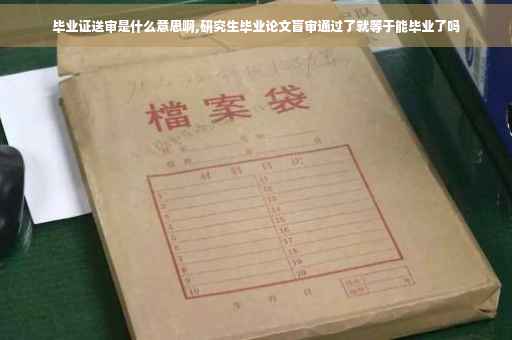 毕业证送审是什么意思啊,研究生毕业论文盲审通过了就等于能毕业了吗
檔案袋
材料目次
1 11
2 12
3 13
4 14
5 15
6 16
7 17
8 18
9 19
10 20
年 月 日